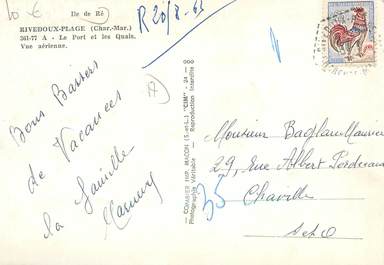 10 €
Ile de Ré
RIVEDOUX-PLAGE (Char.-Mar.)
361-77 A - Le Port et les Quais.
Vue aérienne.
R 20/8-63
17
Bons Baisers
de Vacances
la famille
— COMBIER IMP. MACON (S.-et-L.) "CIM" -
Photographie Véritable - Reproduction Interdite
Monsieur Maurice
29, Rue Albert
Chaville
S et O
35